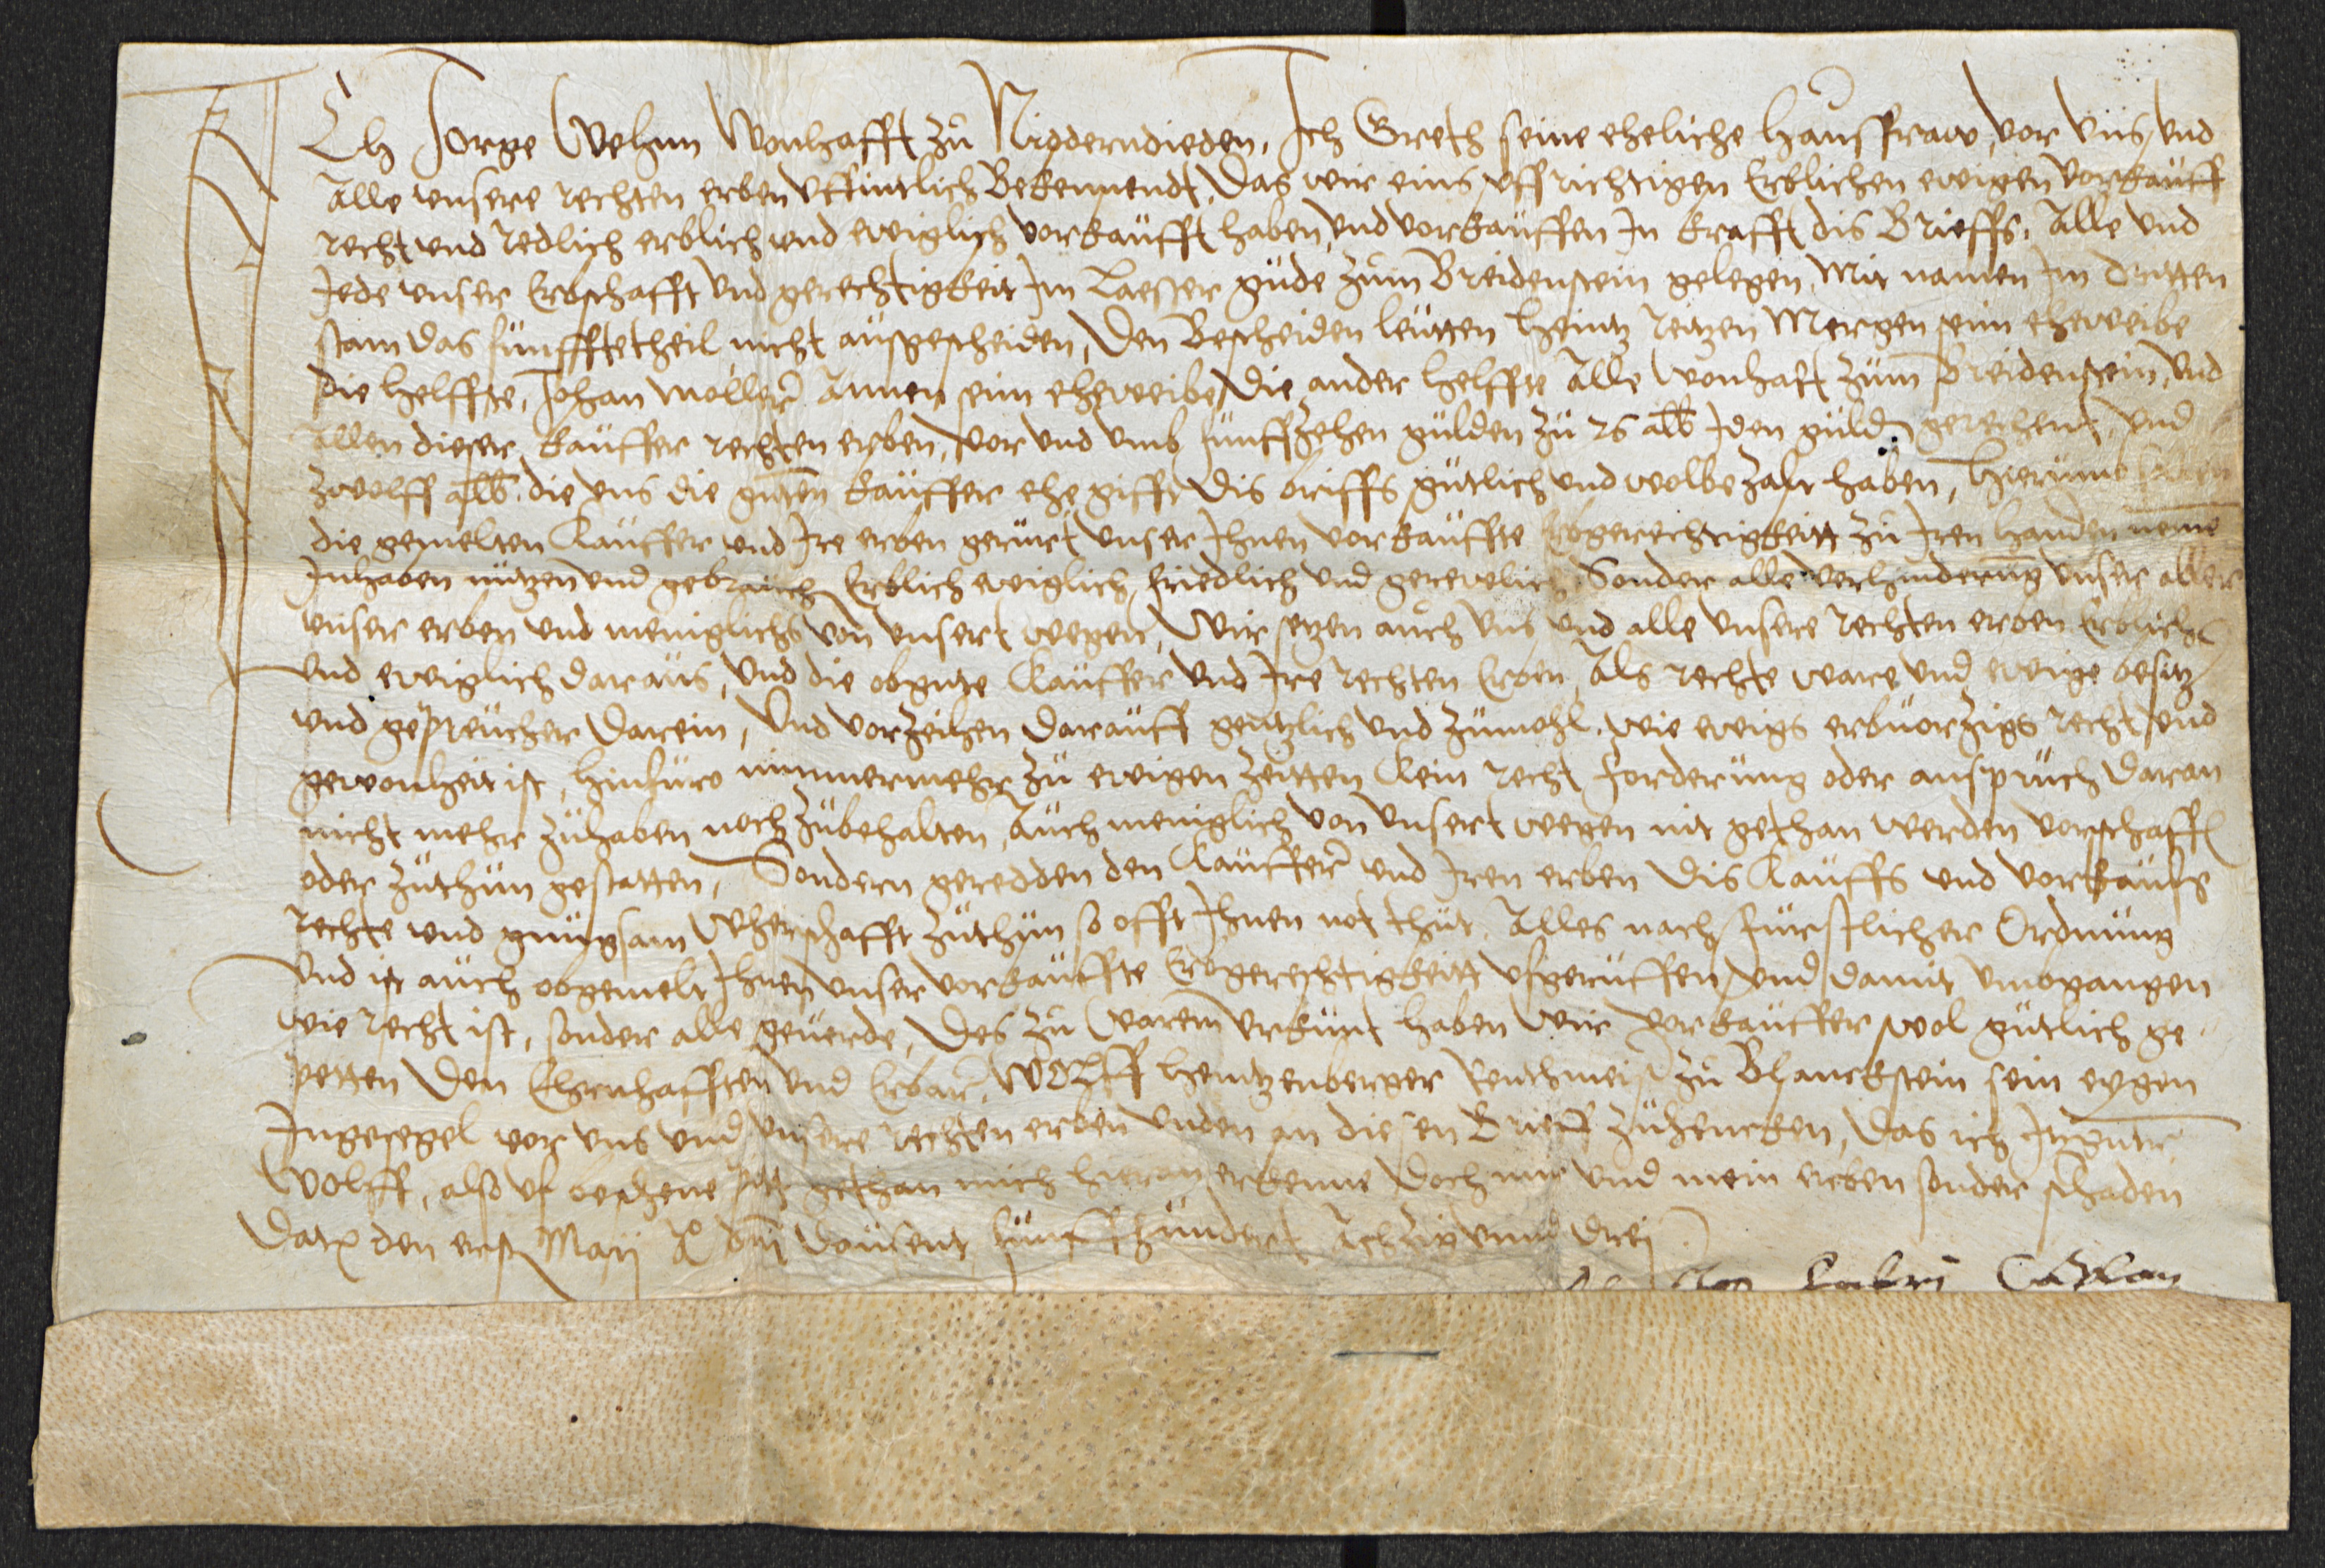 ICh Jorge Wehnn Wonhafft zu Nidderndieden, Ich Greth seine eheliche Haussfraw, vor uns, und
Alle unsere rechten erben offintlich Bekennendt, Das wir eins uffrichtigen Erblichen ewigen vorkauff
recht und redlich erblich und ewiglich vorkaufft haben, und vorkauffen In krafft dis Brieffs, Alle und
Jede unser Erbschafft und gerechtigkeit Im gude zum Breidenstein gelegen, Mit namen Im dritten
stam das funffte theil nicht ausgescheiden, Den Bescheiden leutten Heintz reitzen Mergen seim eheweibe
die helffte, Johan moller Annen seim eheweibe, die ander helffte Alle wonhaft zum Breidenstein, und
Allen dieser kauffer rechten erben, vor und umb funffzehen gulden zu 26 alb Jden guld gerechent, und
zwolff alb. die uns die guten kauffer ehe gifft dis briffs gutlich und wolbezalt haben, Hierumb sollen
die gemelten Kauffer und Ire erben gerurt unser Ihnen vorkauffte Erbgerechtigkeitt zu Iren handen nemen
Inhaben nutzen und gebrauch Erblich ewiglich friedlich und gerewelich, Sonder alle verhinderung unser aller
unser erben und meniglichs von unsert wegen, Wir setzen auch uns und alle unsere rechten erben Erblich
und ewiglich daraus, und die obgnte Kauffer und Ire rechten Erben, Als rechte ware und ewige besitz
und gepreucher darein, Und vorzeihen darauff gentzlich und zumohl, wie ewigs erbvorzigs recht und
gewonheit ist, hinfuro nimmermehr zu ewigen zeitten Kein recht forderung oder anspruch daran
nicht mehr zuhaben noch zubehalten, Auch meniglich von unsert wegen nit gethan werden vorschaffen
oder zuthun gestatten, Sondern geredden den Kauffer und Iren erben dis Kauffs und vorkaufs
rechte und gnugsam Wherschafft zuthun so offt Ihnen not thut, Alles nach furstlicher Ordnung
und ist auch obgemelt Ihnen unser vorkauffte Erbgerechtigkeitt ufgeruffen, und damit umbgangen
wie recht ist, sonder alle geuerde, Des zu warem urkunt haben wir vorkauffer wol gutlich ge
petten den Ehrnhafften und Erbar, WOLff Hentzenberger Rentmeist zu Blanckstein sein eygen
Ingesegel vor uns und unsere rechten erben unden an diesen Brieff zuhencken, das ich Itzgntr
Wolff, also uf beschene pitt gethan mich hieran erkenne doch mir und mein erben sonder schaden
Dat den erst Maij Ao dni dausent funffhundert Achtzig unnd drei